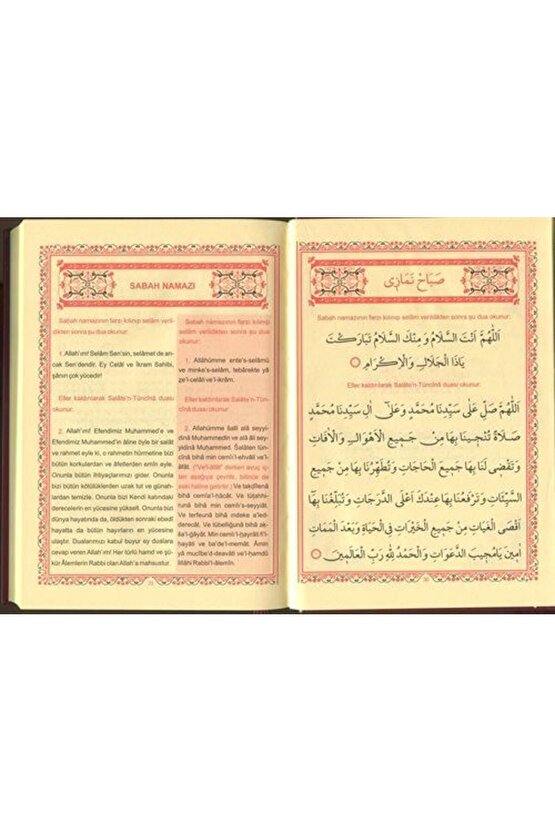 SABAH NAMAZI
Sabah namazının farzı kılınıp selâm veril-
dikten sonra şu dua okunur:
1. Allah'ım! Selâm Sen'sin, selâmet de an-
cak Sen'dendir. Ey Celâl ve İkram Sahibi,
şânın çok yücedir!
Eller kaldırılarak Salâte'n-Tüncînâ duası
okunur:
2. Allah'ım! Efendimiz Muhammed'e ve
Efendimiz Muhammed'in âline öyle bir salât
ve rahmet eyle ki, o rahmetin hürmetine bizi
bütün korkulardan ve âfetlerden emîn eyle.
Onunla bizim bütün ihtiyaçlarımızı gider. Onunla
bizi bütün kötülüklerden uzak tut ve günah-
lardan temizle. Onunla bizi Kendi katındaki
derecelerin en yücesine yükselt. Onunla bizi
dünya hayatında da, öldükten sonraki ebedî
hayatta da bütün hayırların en yücesine
ulaştır. Dualarımızı kabul buyur ey dualara
cevap veren Allah'ım! Her türlü hamd ve şü-
kür Âlemlerin Rabbi olan Allah'a mahsustur.
Sabah namazının farzı kılınıp
selâm verildikten sonra şu dua
okunur:
1. Allahümme ente's-selâmü
ve minke's-selâm, tebârekte yâ
ze'l-celâli ve'l-ikrâm.
Eller kaldırılarak Salâte'n-Tün-
cînâ duası okunur:
2. Allahümme salli alâ seyyi-
dinâ Muhammedin ve alâ âli sey-
yidinâ Muhammed. Salâten tün-
cînâ bihâ min cemî'l-ehvâli ve'l-
âfât. ("Ve'l-âfât" derken avuç iç-
leri aşağıya çevrilir, bitince de
eski haline getirilir.) Ve takdîlenâ
bihâ cemîa'l-hâcât. Ve tütahhi-
runâ bihâ min cemîi's-seyyiât.
Ve terfeunâ bihâ indeke a'led-
derecât. Ve tübelliğunâ bihâ ak-
sa'l-ğâyât. Min cemîi'l-hayrâti fi'l-
hayâti ve ba'de'l-memât. Âmîn
yâ mucîbe'd-deavâti ve'l-hamdü
lillâhi Rabbi'l-âlemîn.
صَبَاحْ نَمَازِى
Sabah namazının farzı kılınıp selâm verildikten sonra şu dua okunur:
اَللّٰهُمَّ اَنْتَ السَّلَامُ وَمِنْكَ السَّلَامُ تَبَارَكْتَ
يَاذَا الْجَلَالِ وَالْاِكْرَامِ
Eller kaldırılarak Salâte'n-Tüncînâ duası okunur:
اَللّٰهُمَّ صَلِّ عَلٰى سَيِّدِنَا مُحَمَّدٍ وَعَلٰى اٰلِ سَيِّدِنَا مُحَمَّدٍ
صَلَاةً تُنْجِينَا بِهَا مِنْ جَمِيعِ الْاَهْوَالِ وَالْاٰفَاتِ
وَتَقْضِى لَنَا بِهَا جَمِيعَ الْحَاجَاتِ وَتُطَهِّرُنَا بِهَا مِنْ جَمِيعِ
السَّيِّئَاتِ وَتَرْفَعُنَا بِهَا عِنْدَكَ اَعْلَى الدَّرَجَاتِ وَتُبَلِّغُنَا بِهَا
اَقْصَى الْغَايَاتِ مِنْ جَمِيعِ الْخَيْرَاتِ فِى الْحَيَاةِ وَبَعْدَ الْمَمَاتِ
اٰمِينَ يَامُجِيبَ الدَّعَوَاتِ وَالْحَمْدُ لِلّٰهِ رَبِّ الْعَالَمِينَ